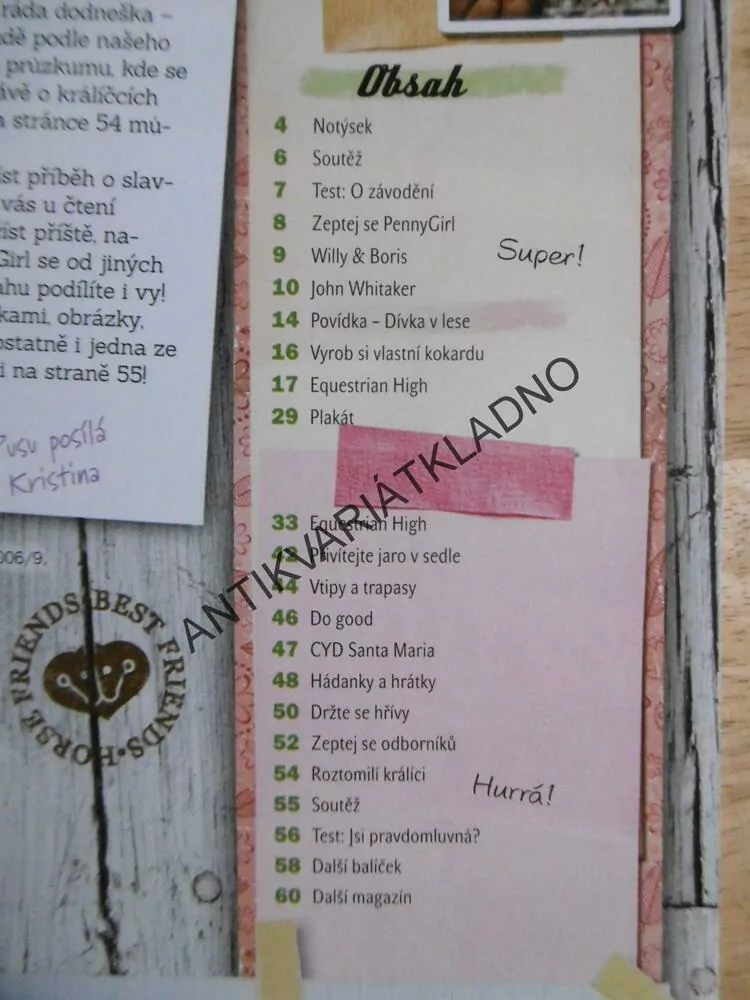 ráda dodneška –
dě podle našeho
průzkumu, kde se
ávě o králíčcích
a stránce 54 mů-
st příběh o slav-
vás u čtení
číst příště, na-
Girl se od jiných
ahu podílíte i vy!
kami, obrázky,
ostatně i jedna ze
i na straně 55!
Pusu posílá
Kristina
006/9,
HORSE FRIENDS BEST FRIENDS
Obsah
4 Notýsek
6 Soutěž
7 Test: O závodění
8 Zeptej se PennyGirl
9 Willy & Boris
Super!
10 John Whitaker
14 Povídka – Dívka v lese
16 Vyrob si vlastní kokardu
17 Equestrian High
29 Plakát
33 Equestrian High
42 Přivítejte jaro v sedle
44 Vtipy a trapasy
46 Do good
47 CYD Santa Maria
48 Hádanky a hrátky
50 Držte se hřívy
52 Zeptej se odborníků
54 Roztomilí králíci
Hurrá!
55 Soutěž
56 Test: Jsi pravdomluvná?
58 Další balíček
60 Další magazín
ANTIKVARIÁTKLADNO